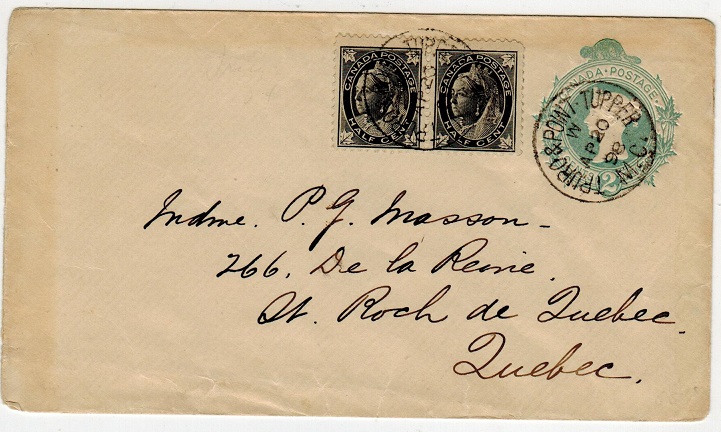 CANADA POSTAGE
HALF CENT
CANADA POSTAGE
HALF CENT
CANADA POSTAGE
2
TRURO & POINT TUPPER
W
AP 20
98
Mdme. P. G. Masson -
266. De la Reine.
St. Roch de Quebec.
Quebec.